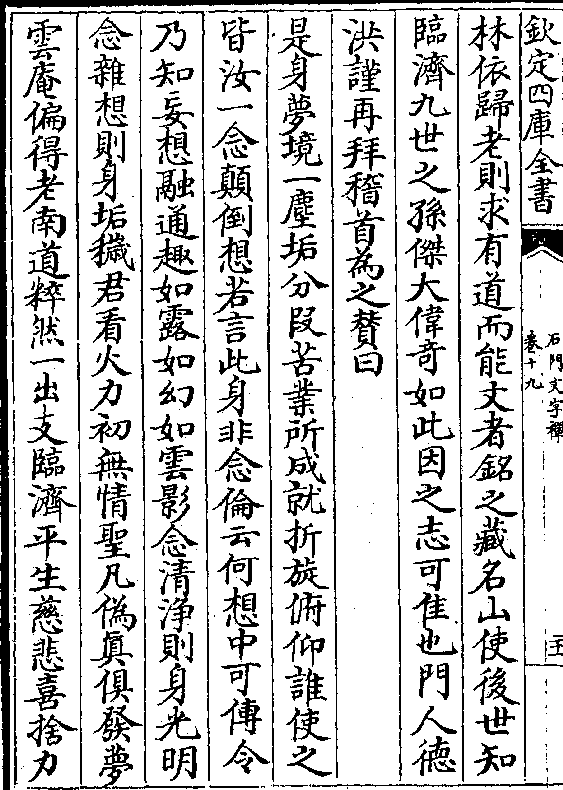 欽定四庫全書
石門文字禪
卷十九
五
林依歸老則求有道而能文者銘之藏名山使後世知
臨濟九世之孫傑大偉竒如此因之志可隹也門人德
洪謹再拜稽首為之贊曰
是身夢境一塵垢分叚苦業所成就折旋俯仰誰使之
皆汝一念顛倒想若言此身非念倫云何想中可傳令
乃知妄想融通趣如露如幻如雲影念清浄則身光明
念雜想則身垢穢君看火力初無情聖凡偽真俱發夢
雲庵偏得老南道粹然一出支臨濟平生慈悲喜捨力